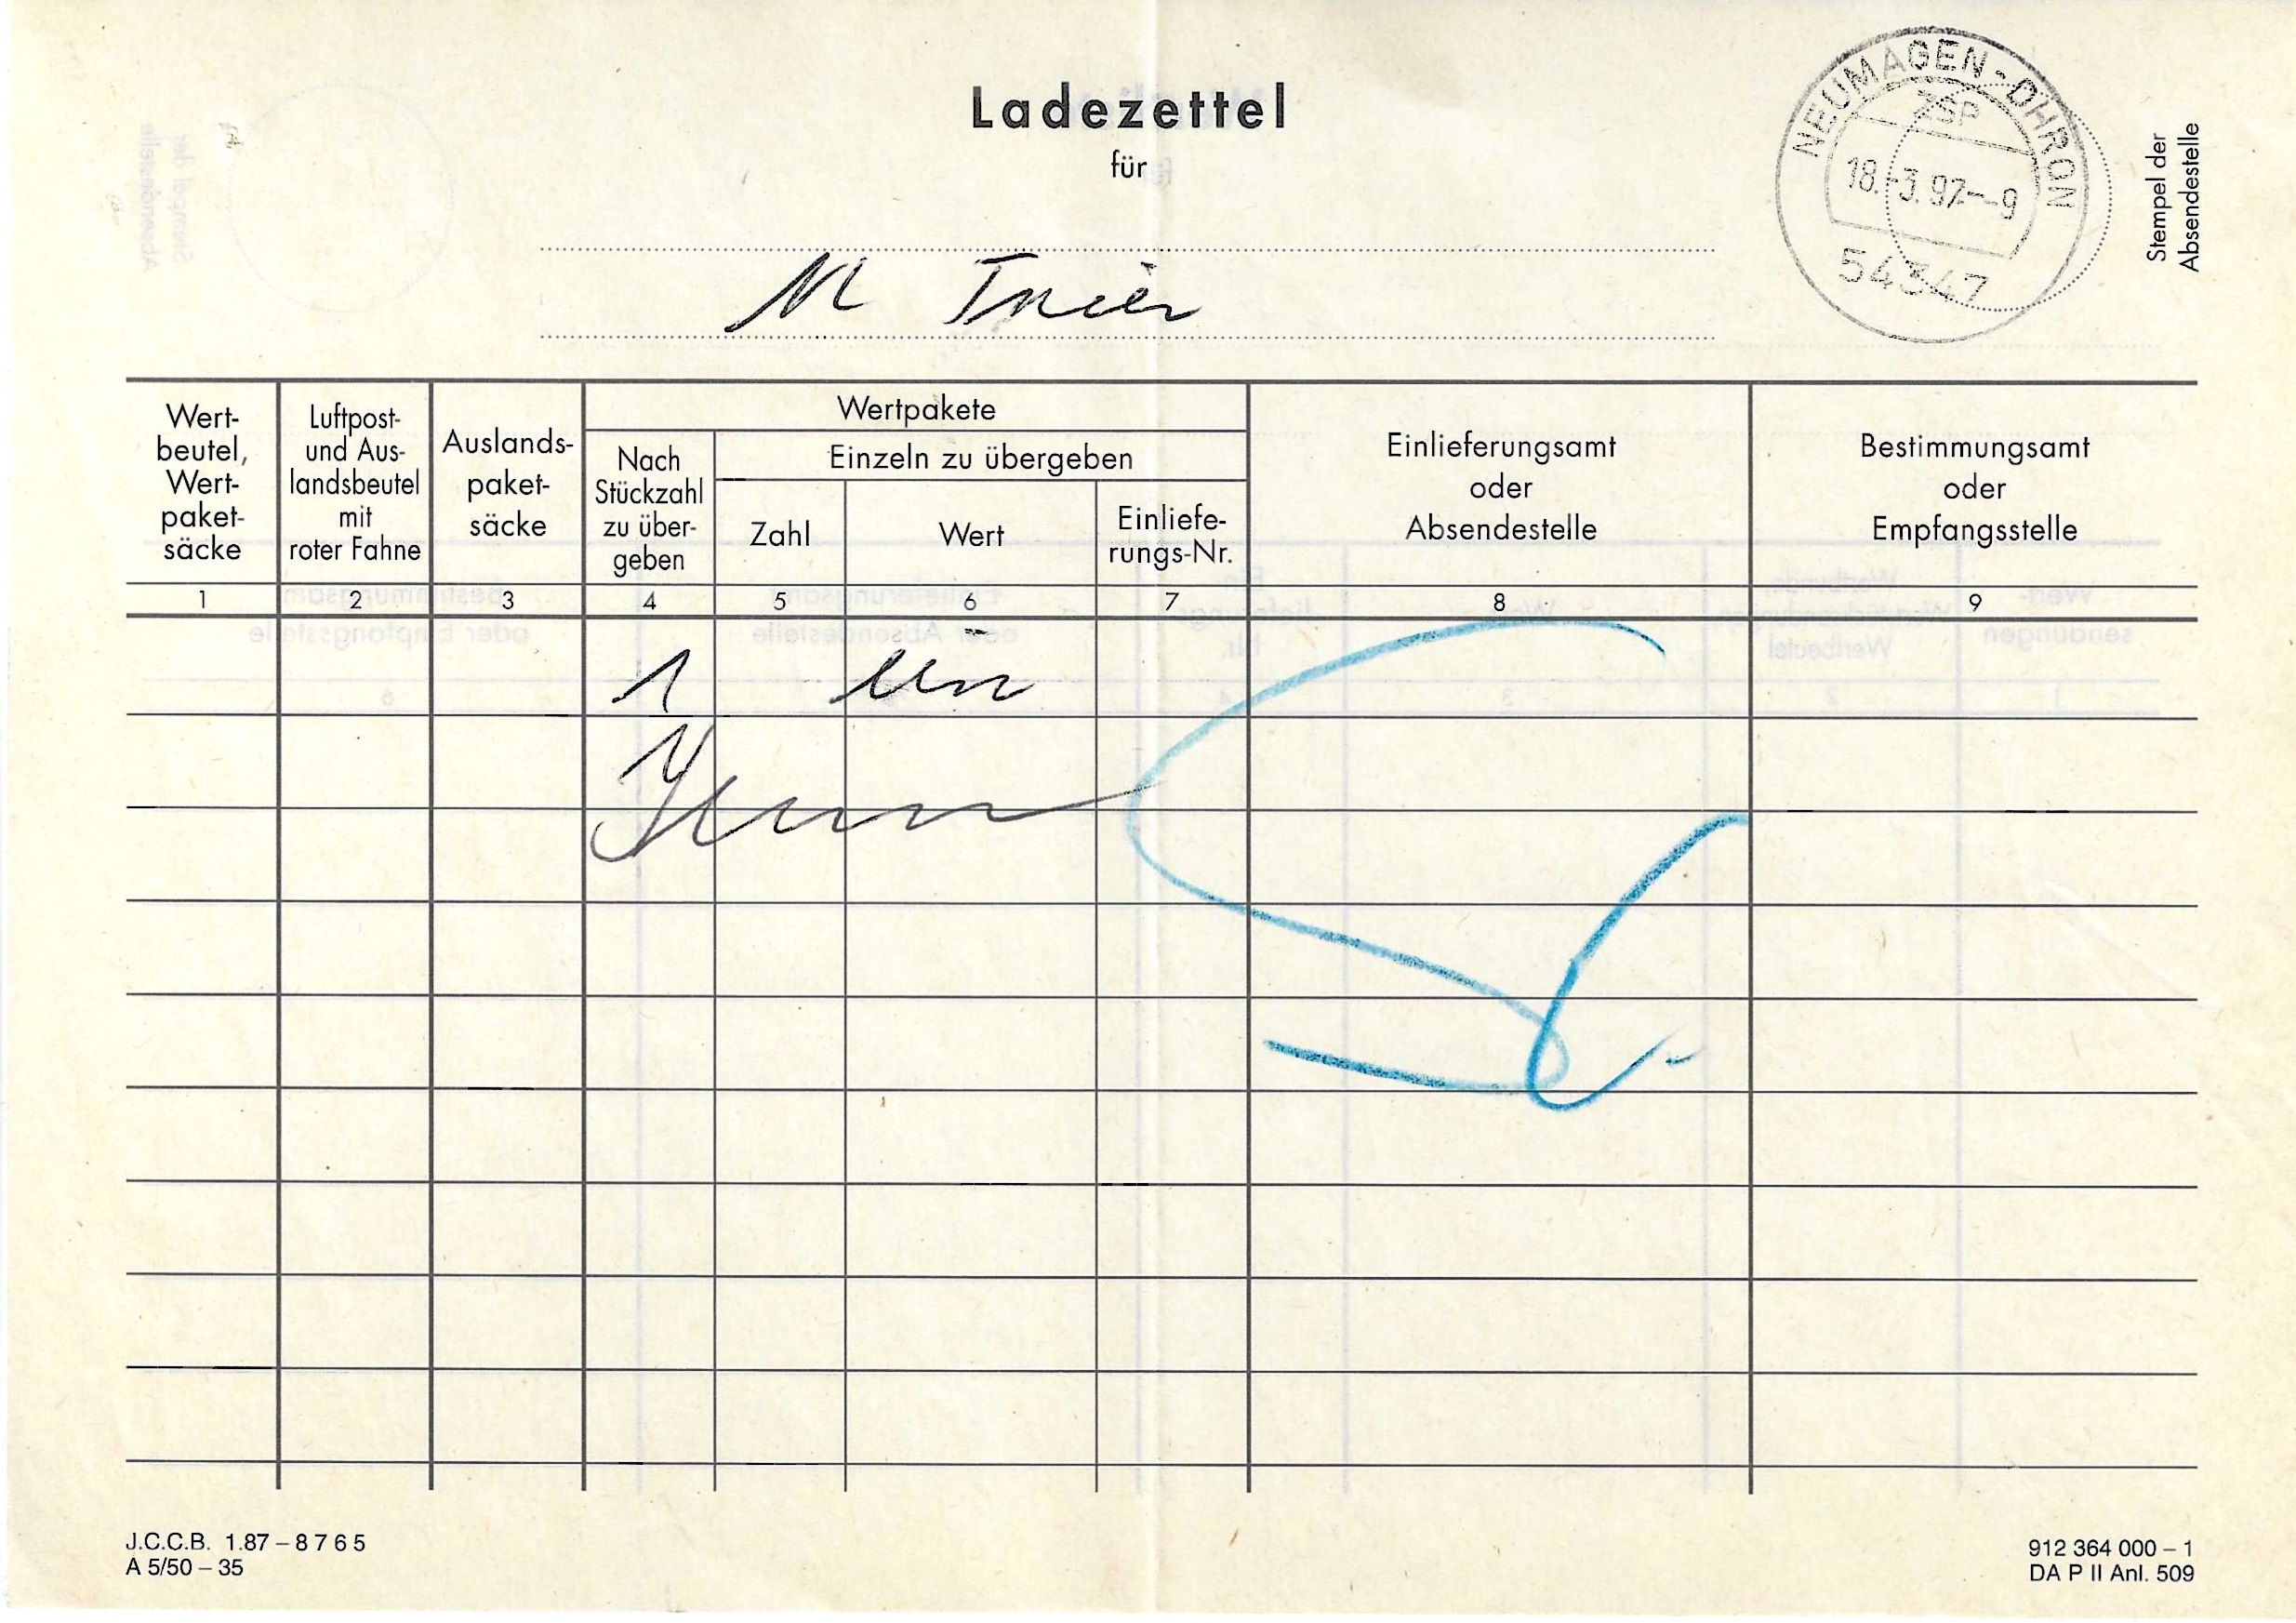 Ladezettel
für
NEUMAGEN-DHRON
ZSP
18.-3.97--9
54347
Stempel der
Absendestelle
Trier
Wert-
beutel,
Wert-
paket-
säcke
Luftpost-
und Aus-
landsbeutel
mit
roter Fahne
Auslands-
paket-
säcke
Wertpakete
Nach
Stückzahl
zu über-
geben
Einzeln zu übergeben
Zahl
Wert
Einliefe-
rungs-Nr.
Einlieferungsamt
oder
Absendestelle
Bestimmungsamt
oder
Empfangsstelle
1 2 3 4 5 6 7 8 9
1
J.C.C.B. 1.87 – 8 7 6 5
A 5/50 – 35
912 364 000 – 1
DA P II Anl. 509